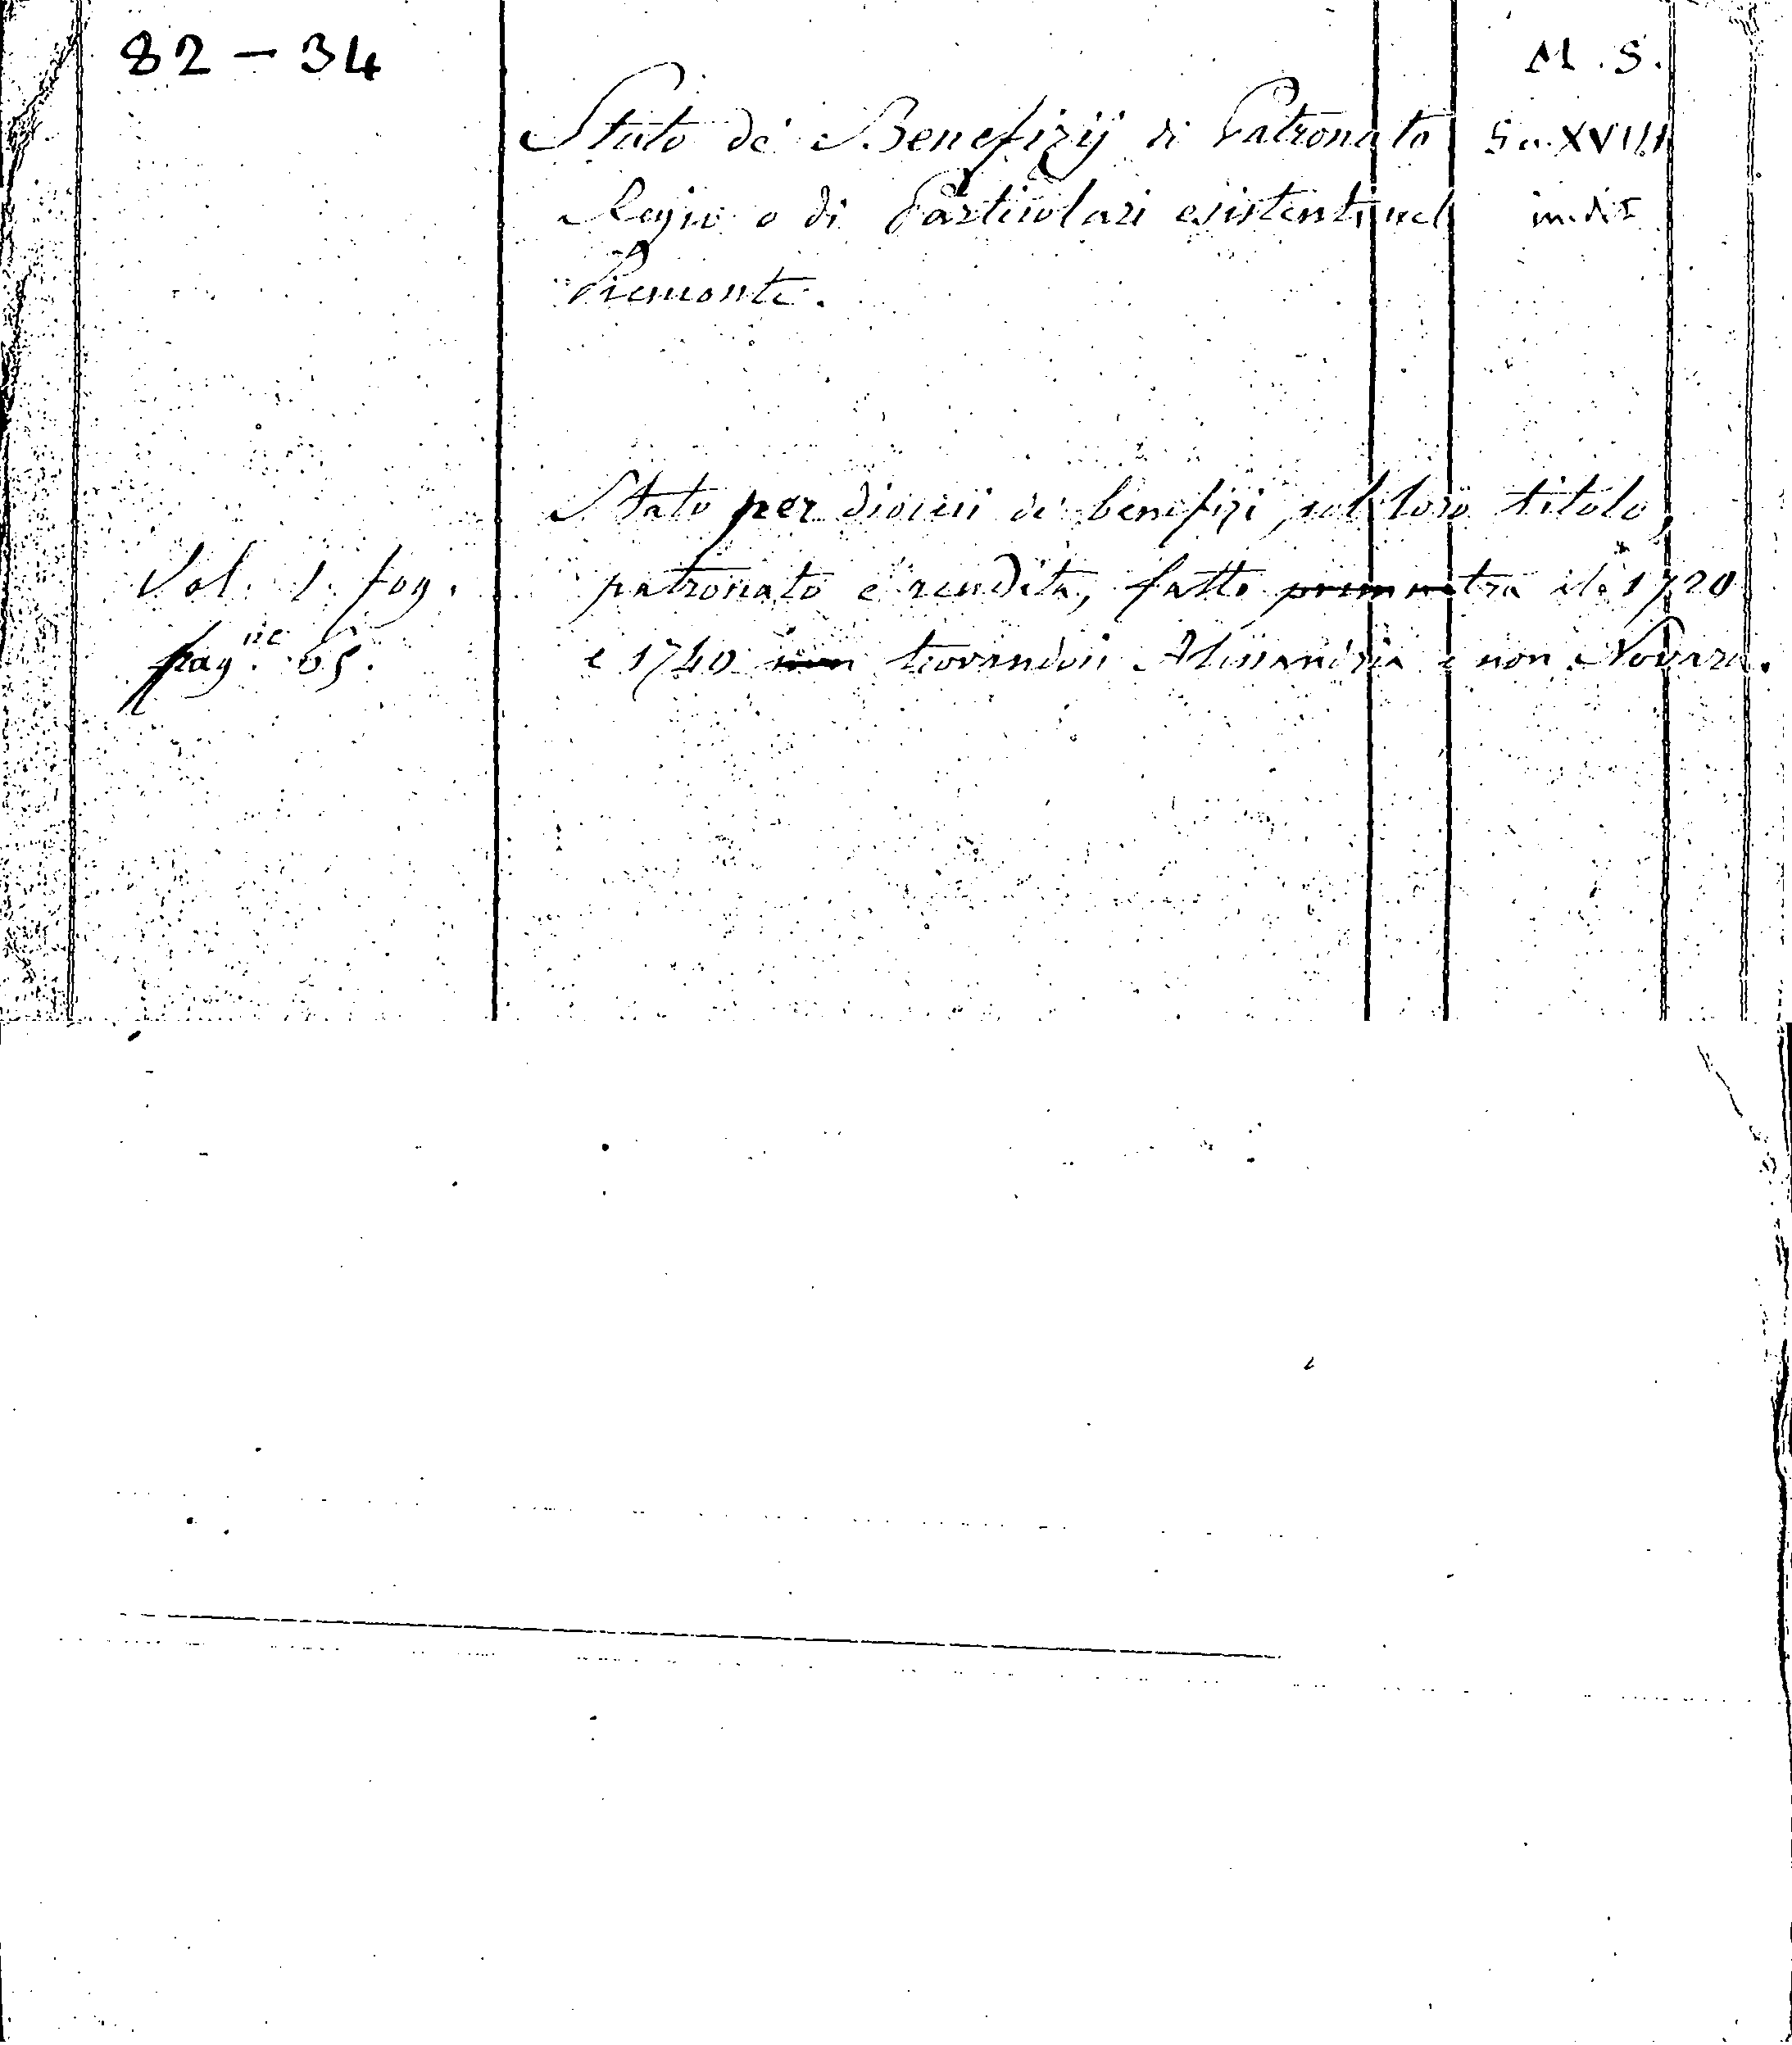 82 - 34
M. S.
Stato de' Benefizij di Patronato
Sec. XVIII
Regio o di Particolari esistenti nel
inedit
Piemonte.
Stato per diocesi de' benefizi, col loro titolo,
Vol. 1. fog.
patronato e rendita, fatto tra il 1720
pag.ne 65.
e 1740 trovandosi Alessandria e non Novara.